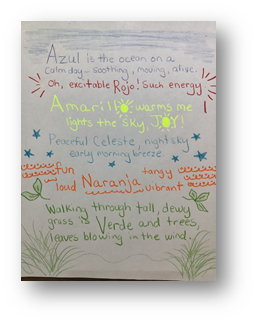 Azul is the ocean on a
calm day - soothing, moving, alive.
Oh, excitable Rojo! Such energy
Amarillo warms me
lights the sky, JOY!
Peaceful Celeste, night sky
early morning breeze
fun tangy
loud Naranja vibrant
Walking through tall, dewy
grass is Verde and trees,
leaves blowing in the wind.